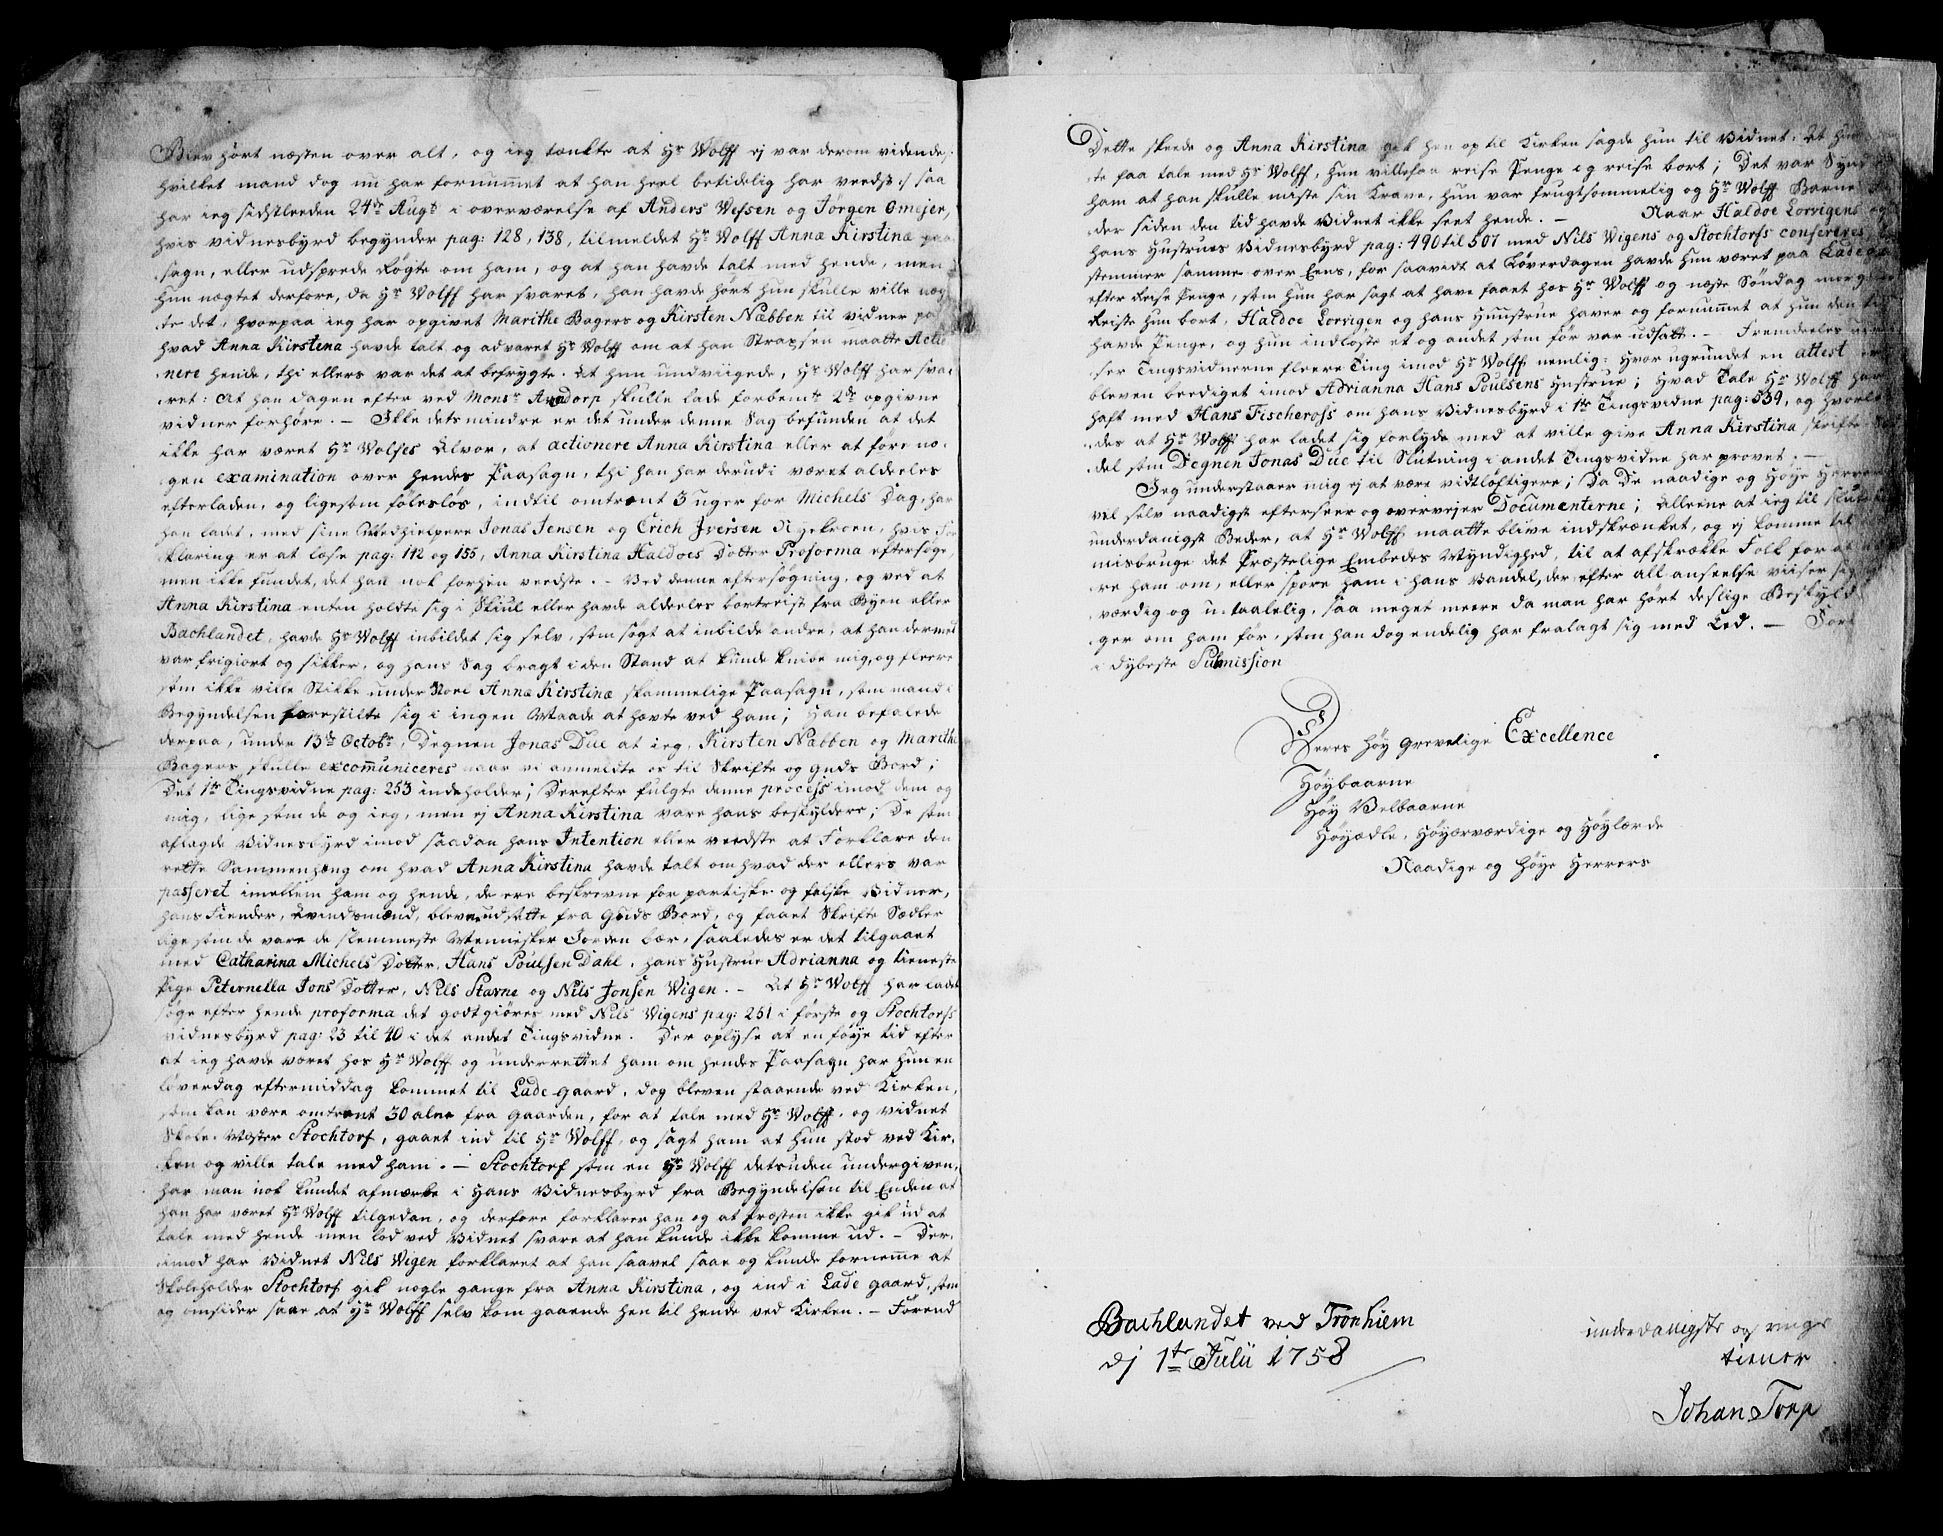 Blev hørt næsten over alt, og ieg tænkte at Hr Wolff ej var derom vidende,
hvilket mand dog nu har fornummet at han heel betidelig har veedst :/ saa
har ieg sidstleeden 24de Augt i overværelse af Anders Wefsen og Jørgen Omejer,
hvis vidnesbyrd begynder pag: 128, 138, tilmeldet Hr Wolff Anna Kirstina paa
sagn, eller udsprede Røgte om ham, og at han havde talt med hende, men
hun nægtet derfore, da Hr Wolff har svaret, han havde hørt hun skulle ville næg
te det, hvorpaa ieg har opgivet Marithe Bagers og Kirsten Næbben til vidner paa
hvad Anna Kirstena havde talt og advaret Hr Wolff om at han Straxsen maatte Actio
nere hende, thi ellers var det at befrygte. At hun undviigede, Hr Wolff har sva-
ret: At han dagen efter ved Monsr Arndorp skulle lade forbemte 2de opgivne
vidner forhøre. - Ikke detsmindre er det under denne Sag befunden at det
ikke har været Hr Wolfes Alvor, at actionere Anna Kirstina eller at føre no-
gen examination over hendes Paasagn, thi han har derudi været aldeeles
efterladen, og ligesom føleslös, indtil omtrent 3 uger for Michels Dag, har
han ladet, med sine Medhielpere Jonas Jensen og Erich Iversen Nyekroen, hvis For
klaring er at læse pag: 142 og 155, Anna Kirstina Haldoes Dotter Proforma eftersøge,
men ikke fundet, det han nok forhen veedste. - Ved denne eftersøgning, og ved at
Anna Kirstina enten holdte sig i Skiul eller havde aldeeles bortreist fra Byen eller
Bachlandet, havde Hr Wolff inbildet sig selv, som søgt at inbilde andre, at han dermed
var frigiort og sikker, og hans Sag bragt i den Stand at kunde knibe mig, og fleere
som ikke ville Stikke under Stoel Anna Kirstina skammelige Paasagn, som mand i
Begyndelsen forestilte sig i ingen Maade at hæfte ved ham; Han befalede
derpaa, under 13de Octobr, Degnen Jonas Due at ieg, Kirsten Næbben og Marithe
Bagers skulle excommuniceres naar vi anmeldte os til Skrifte og Guds Bord;
Det 1te Tingsvidne pag: 253 indeholder; Derefter fulgte denne process imod dem og
mig, lige som de og ieg, men ej Anna Kirstina vare hans beskyldere; De som
aflagde vidnesbyrd imod saadan hans Intention eller veedste at Forklare den
rette Sammenhæng om hvad Anna Kirstina havde talt om hvad der ellers var
passeret imellem ham og hende, de ere beskrevne for partiske og falske Vidner,
hans Fiender, Avindsmænd, bleven udsatte fra Guds Bord, og faaet Skrifte Sædler
lige som de vare de slemmeste Mennisker Jorden bær, saaledes er det tilgaaet
med Catharina Michels Dotter, Hans Poulsen Dahl, hans Hustrue Adrianna og tieneste
Pige Peternella Jons Dotter, Nils Starne og Nils Jonsen Wigen. - At Hr Wolff har ladet
søge efter hende proforma det godtgiøres med Nils Wigens pag: 251 i første og Stochtorfs
vidnesbyrd pag: 23 til 40 i det andet Tingsvidne. Der oplyse at en føye tid efter
at ieg havde været hos Hr Wolff og underrettet ham om hendes Paasagn har hun en
løverdag eftermiddag kommet til Lade gaard, dog bleven staaende ved Kirken,
som kan være omtrent 30 alne fra gaarden, for at tale med Hr Wolff, og vidnet
Skole Mæster Stochtorf, gaaet ind til Hr Wolff, og sagt ham at hun stod ved Kir-
ken og ville tale med ham. - Stochtorf som en Hr Wolff detsuden undergiven,
har man nok kundet afmærke i Hans Vidnesbyrd fra Begyndelsen til Enden at
han har været Hr Wolff tilgedan, og derfore forklarer han og at Præsten ikke gik ud at
tale med hende men lod ved Vidnet svare at han kunde ikke komme ud. - Der-
imod har Vidnet Nils Wigen forklaret at han saavel saae og kunde fornemme at
Skoleholder Stochtorf gik nogle gange fra Anna Kirstina, og ind i Lade gaard, som
og omsider saae at Hr Wolff selv kom gaaende hen til hende ved Kirken. - Forend
Dette skeede og Anna Kirstina gik hen op til Kirken sagde hun til Vidnet: At hun
te faa tale med Hr Wolff, hun ville faa reise Penge og reise bort; Det var Synd
ham at han skulle miste sin Krave, hun var frugtsommelig og Hr Wolff Barne
der siden den tid havde Vidnet ikke seet hende. - Naar Haldoe Lorvigens og
hans Hustrues Vidnesbyrd pag: 490 til 507 med Nils Wigens og Stochtorfs confereres,
stemmer samme over Eens, for saavidt at Løverdagen havde hun været paa Lade
efter Reise Penge, som hun har sagt at have faaet hos Hr Wolff og næste Søndag morgen
Reiste hun bort, Haldoe Lorvigen og hans Huustrue haver og fornummet at hun den tid
havde Penge, og hun indløste et og andet som før var udsatt. - Fremdeeles
ser Tingsvidnerne fleere Ting imod Hr Wolff nemlig: Hvor ugrundet en attest er
bleven berdiget imod Adrianna Hans Poulsens Hustrue; Hvad Tale Hr Wolff har
haft med Hans Fischeross om hans Vidnesbyrd i 1te Tingsvidne pag: 539, og hvorle
des at Hr Wolff har ladet sig forlyde med at ville give Anna Kirstina Skrifte
del som Degnen Jonas Due til Slutning i andet Tingsvidne har provet. -
Jeg understaaer mig ej at være vidtløftigere; Da De naadige og Høye Herrer
vil selv naadigst efterseer og overvejer Documenterne; Alleene at ieg til slut
underdanigst Beder, at Hr Wolff maatte blive indskrænket, og ej komme til
misbruge det Præstelige Embedes Myndighed, til at afskrække Folk for at
re ham om, eller spore ham i hans Vandel, der efter all anseelse viiser sig
værdig og u-taalelig, saa meget meere da man har hørt deslige Beskyld
ger om ham før, som han dog endelig har fralagt sig med Eed. -
i dybeste Submission
Deres Høy Grevelige Excellence
Høybaarne
Høy Velbaarne
Høyædle, Høyærværdige og Høylærde
Naadige og Høye Herrers
Bachlandet ved Tronhiem
dj 1te Julii 1758
underdanigste og ringe
tiener
Johan Torp